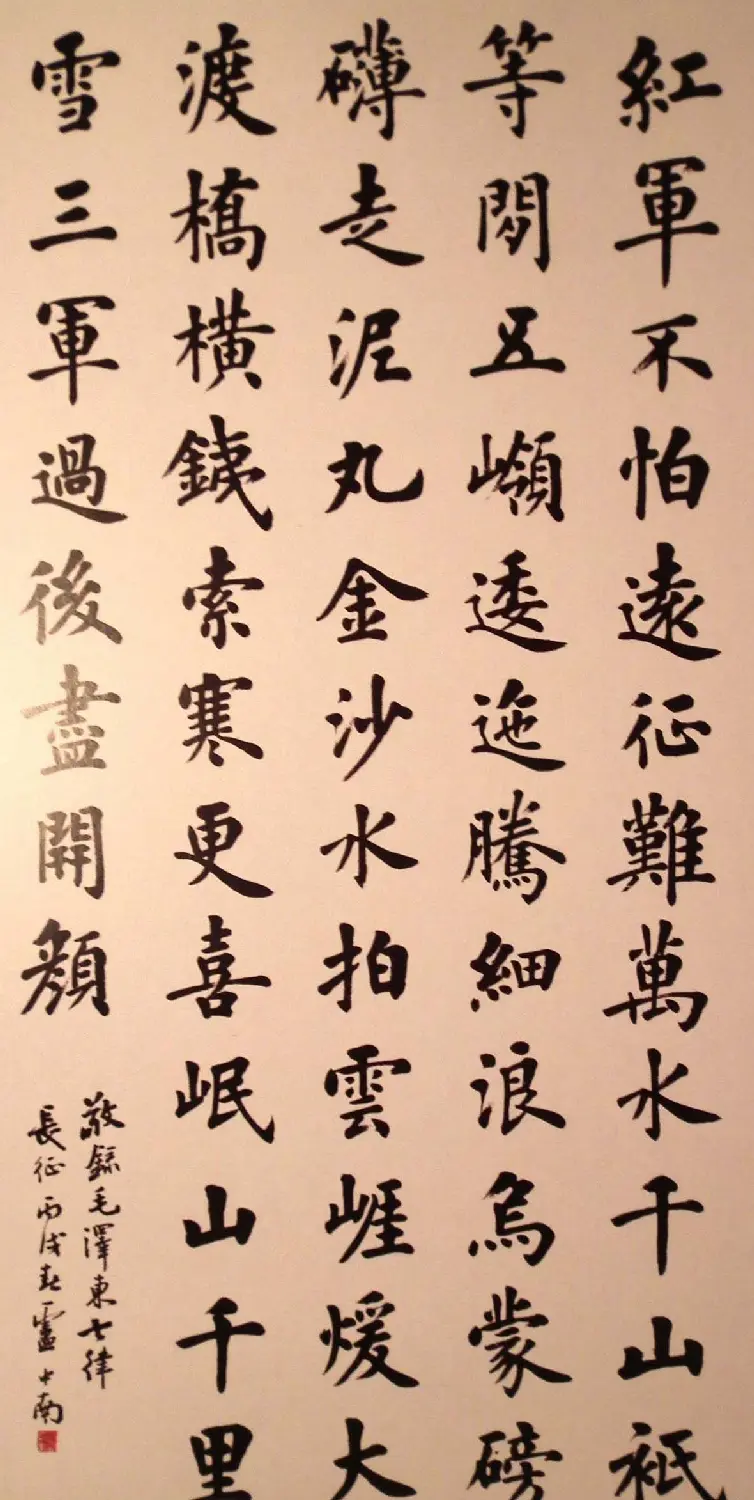 紅軍不怕遠征難萬水千山祇
等閒五嶺逶迤騰細浪烏蒙磅
礴走泥丸金沙水拍雲崖煖大
渡橋橫鐵索寒更喜岷山千里
雪三軍過後盡開顏
敬錄毛澤東七律
長征丙戌春盧中南